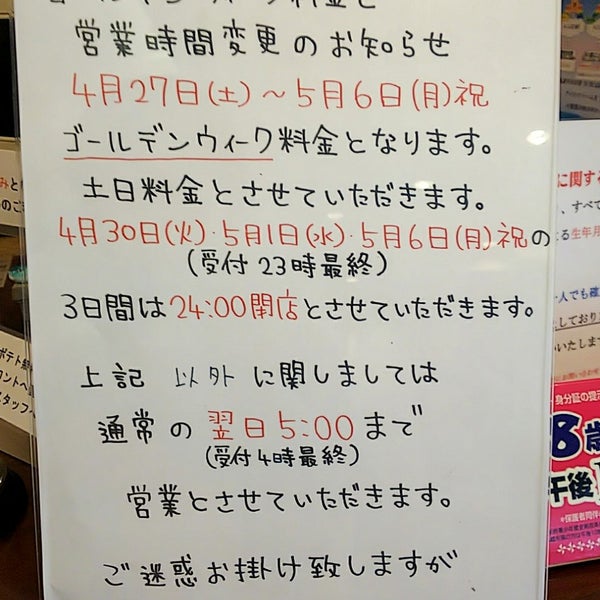 営業時間変更のお知らせ
4月27日(土)～5月6日(月)祝
ゴールデンウィーク料金となります。
土日料金とさせていただきます。
4月30日(火)・5月1日(水)・5月6日(月)祝の
(受付23時最終)
3日間は24:00閉店とさせていただきます。
上記 以外 に関しましては
通常の 翌日5:00まで
(受付4時最終)
営業とさせていただきます。
ご迷惑お掛け致しますが
に関する
、すべて
る生年月
一人でも確
しており
いたします
身分証の提示
8歳
午後
※保護者同伴